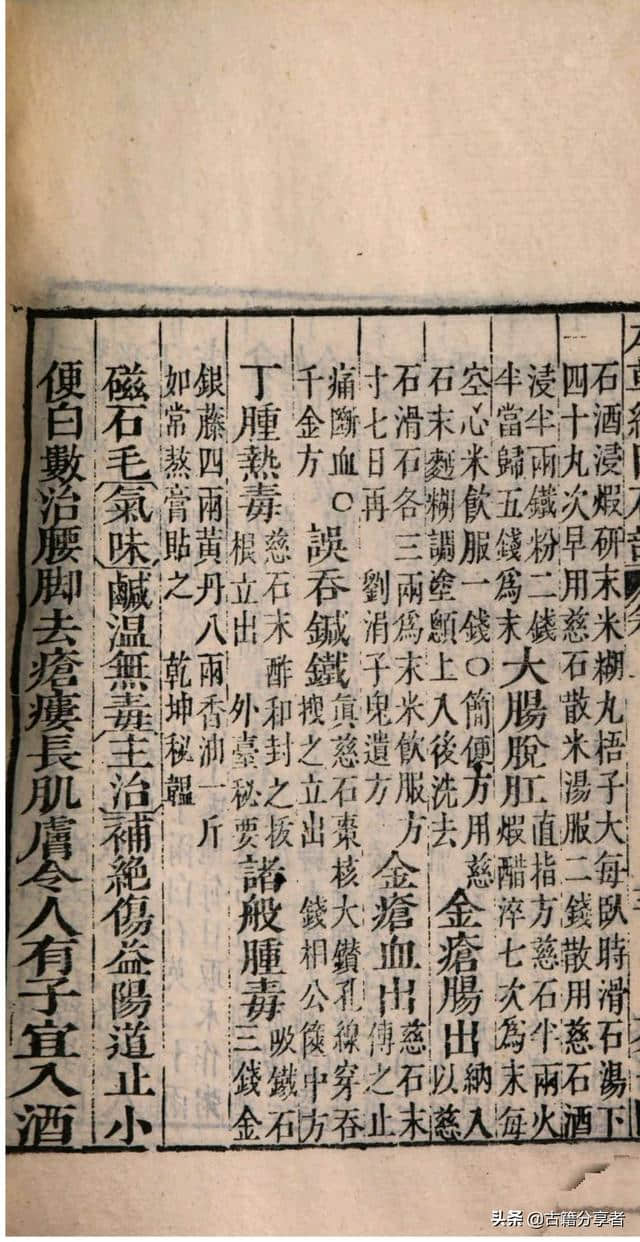 石酒浸煆研末米糊丸梧子大每臥時滑石湯下
四十九次早用慈石散米湯服二錢散用慈石酒
浸半兩鐵粉二錢
半當歸五錢爲末
大腸脫肛
直指方慈石半兩火
煆醋淬七次為末每
空心米飲服一錢○簡便方用慈
石末麪糊調塗顖上入後洗去
金瘡腸出
納入
以慈
石滑石各三兩爲末米飲服方
寸七日再 劉涓子鬼遺方
金瘡血出
慈石末
傅之止
痛斷血○
千金方
誤吞鍼鐵
眞慈石棗核大鑽孔線穿吞
搜之立出 錢相公篋中方
丁腫熱毒
慈石末酢和封之拔
根立出 外臺秘要
諸般腫毒
吸鐵石
三錢金
銀藤四兩黃丹八兩香油一斤
如常熬膏貼之 乾坤秘韞
磁石毛氣味鹹温無毒主治補絶傷益陽道止小
便白數治腰脚去瘡瘻長肌膚令人有子宜入酒
头条 @古籍分享者